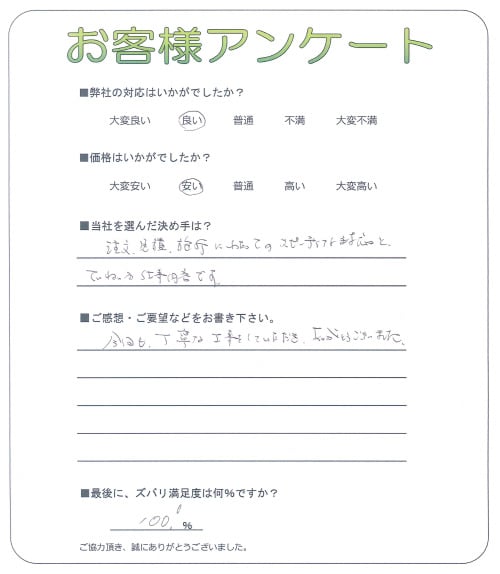 お客様アンケート
■弊社の対応はいかがでしたか？
大変良い 良い 普通 不満 大変不満
■価格はいかがでしたか？
大変安い 安い 普通 高い 大変高い
■当社を選んだ決め手は？
注文、見積、施行にわたってのスピーディな対応と、
ていねいな仕事内容です。
■ご感想・ご要望などをお書き下さい。
今回も、丁寧な工事をしていただき、ありがとうございました。
■最後に、ズバリ満足度は何%ですか？
100 %
ご協力頂き、誠にありがとうございました。